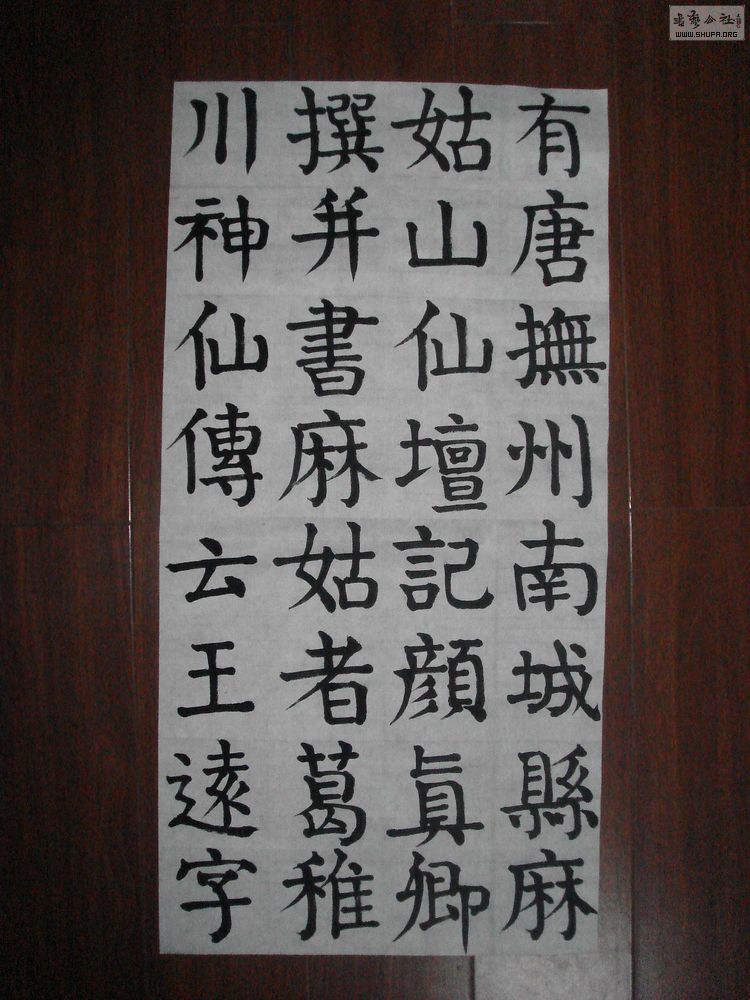 有唐撫州南城縣麻
姑山仙壇記顏眞卿
撰并書麻姑者葛稚
川神仙傳云王遠字
WWW.SHUFA.ORG